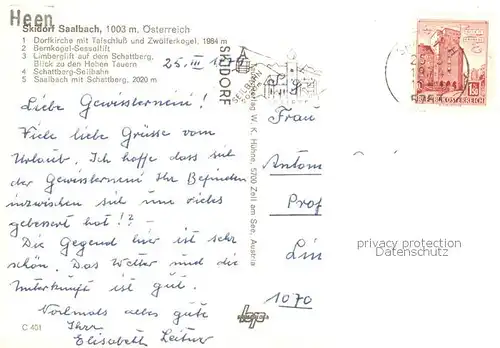 Heen
Skidorf Saalbach, 1003 m, Österreich
1 Dorfkirche mit Talschluß und Zwölferkogel, 1984 m
2 Bernkogel-Sessellift
3 Limberglift auf dem Schattberg,
Blick zu den Hohen Tauern
4 Schattberg-Seilbahn
5 Saalbach mit Schattberg, 2020 m
25. III
Liebe
Viele liebe Grüsse vom
Urlaub. Ich hoffe dass sich
Ihr Befinden
inzwischen
gebessert hat!?
Die Gegend hier ist sehr
schön. Das Wetter und die
Unterkunft ist gut.
Nochmals alles gute
Ihre
Elisabeth Leitner
C 401
SKIDORF
SEILBAHN
W. K. Hühne, 5700 Zell am See, Austria
REPUBLIK ÖSTERREICH
Frau
Prof
Lin
1070
privacy protection
Datenschutz